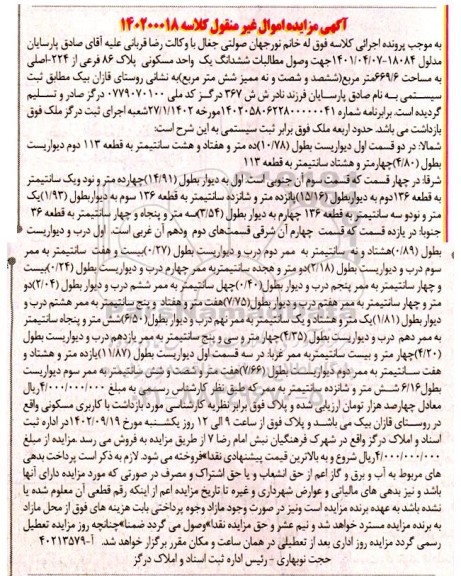 آگهی مزایده اموال غیر منقول کلاسه ۱۴۰۲۰۰۰۱۸
به موجب پرونده اجرائی کلاسه فوق له خانم نورجهان صولتی جغال با وکالت رضا قربانی علیه آقای صادق پارسایان
مدلول ۱۸۰۸۴-۱۴۰۱/۰۴/۰۷جهت وصول مطالبات ششدانگ یک واحد مسکونی پلاک ۸۶ فرعی از ۲۲۴-اصلی
به مساحت ۶۶۹/۶متر مربع(ششصد و شصت و نه ممیز شش متر مربع)به نشانی روستای قازان بیک مطابق ثبت
سیستمی به نام صادق پارسایان فرزند نادر ش ش ۳۶۷ درگز کد ملی ۰۷۷۹۰۷۰۱۰۰ درگز صادر و تسلیم
گردیده است.برابرنامه شماره ۱۴۰۲۵۰۵۸۰۶۲۲۸۰۰۰۰۰۴۱مورخه ۲۷/۱/۱۴۰۲شعبه اجرای ثبت درگز ملک فوق
بازداشت می باشد. حدود اربعه ملک فوق برابر ثبت سیستمی به این شرح است:
شمالا: در دو قسمت اول دیواریست بطول (۱۰/۷۸)ده متر و هفتاد و هشت سانتیمتر به قطعه 113 دوم دیواریست
بطول (۴/۸۰)چهارمتر و هشتاد سانتیمتر به قطعه ۱۱۳
شرقا: در چهار قسمت که قسمت سوم آن جنوبی است اول به دیوار بطول (۱۴/۹۱)چهارده متر و نود ویک سانتیمتر
به قطعه ۱۳۶دوم به دیواربطول (۱۵/۱۶)پانزده متر و شانزده سانتیمتر به قطعه ۱۳۶ سوم به دیواربطول (۱/۹۳)یک
متر و نودو سه سانتیمتر به قطعه ۱۳۶ چهارم به دیوار بطول (۳/۵۴)سه متر و پنجاه و چهار سانتیمتر به قطعه ۳۶
جنوبا: در یازده قسمت که قسمت چهارم آن شرقی قسمت‌های دوم ودهم آن غربی است. اول درب و دیواریست
بطول (۰/۸۹)هشتاد و نه سانتیمتر به ممر دوم درب و دیواریست بطول (۰/۲۷)بیست و هفت سانتیمتر به ممر
سوم درب و دیواریست بطول (۲/۱۸)دو متر و هجده سانتیمتربه ممر چهارم درب و دیواریست بطول (۰/۲۴)بیست
و چهار سانتیمتر به ممر پنجم درب و دیوار بطول(۰/۴۰)چهل سانتیمتر به ممر ششم درب و دیوار بطول (۲/۰۴)دو
متر و چهار سانتیمتر به ممر هفتم درب و دیوار بطول(۷/۷۵)هفت متر و هفتاد و پنج سانتیمتر به ممر هشتم درب و
دیوار بطول (۱/۸۱)یک متر و هشتاد و یک سانتیمتر به ممر نهم درب و دیوار بطول (۶/۵۰)شش متر و پنجاه سانتیمتر
به ممر دهم درب و دیواریست بطول (۴/۳۵)چهار متر و سی و پنج سانتیمتر به ممر یازدهم درب و دیواریست بطول
(۴/۲۰)چهار متر و بیست سانتیمتربه ممر غربا: در سه قسمت اول دیواریست بطول (۱۱/۸۷)یازده متر و هشتاد و
هفت سانتیمتر به ممر دوم دیواریست بطول(۷/۶۶)هفت متر و شصت و شش سانتیمتر به ممر سوم دیواریست
بطول۶/۱۶ شش متر و شانزده سانتیمتر به ممر که طبق نظر کارشناس رسمی به مبلغ ۴/۰۰۰/۰۰۰/۰۰۰ریال
معادل چهارصد هزار تومان ارزیابی شده و پلاک فوق برابر نظریه کارشناسی مورد بازداشت با کاربری مسکونی واقع
در روستای قازان بیک می باشد و پلاک فوق از ساعت ۹ الی ۱۲ روز یکشنبه مورخ ۱۴۰۲/۰۹/۱۹در اداره ثبت
اسناد و املاک درگز واقع در شهرک فرهنگیان نبش امام رضا ۷ از طریق مزایده به فروش می رسد .مزایده از مبلغ
۴/۰۰۰/۰۰۰/۰۰۰ریال شروع و به بالاترین قیمت پیشنهادی نقدا*فروخته می شود. لازم به ذکر است پرداخت بدهی
های مربوط به آب و برق و گاز اعم از حق انشعاب و یا حق اشتراک و مصرف در صورتی که مورد مزایده دارای آنها
باشد و نیز بدهی های مالیاتی و عوارض شهرداری و غیره تا تاریخ مزایده اعم از اینکه رقم قطعی آن معلوم شده یا
نشده باشد به عهده برنده مزایده است ونیز در صورت وجود مازاد وجوه پرداختی بابت هزینه های فوق از محل مازاد
به برنده مزایده مسترد خواهد شد و نیم عشر و حق مزایده نقدا*وصول می گردد ضمنا*چنانچه روز مزایده تعطیل
رسمی گردد مزایده روز اداری بعد از تعطیلی در همان ساعت و مکان مقرر برگزار خواهد شد. آ-۴۰۲۱۳۵۷۹
حجت نوبهاری - رئیس اداره ثبت اسناد و املاک درگز